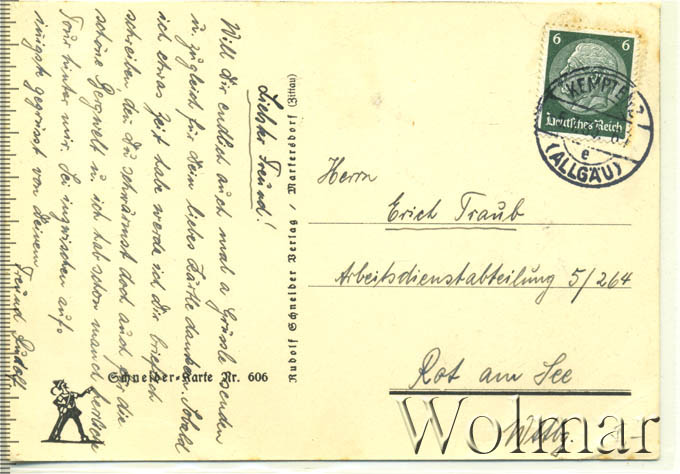 Liebster Freund!
Will dir endlich auch mal a Grüssle senden
u. zugleich für dein liebes Kärtle danken. Sobald
ich etwas Zeit habe werde ich dir brieflich
schreiben den du schwärmst doch auch für die
schöne Bergwelt u. ich hab schon manch herrliche
Tour hinter mir. Sei inzwischen aufs
innigste gegrüsst von deinem
Freund Rudolf
Schneider-Karte Nr. 606
Rudolf Schneider Verlag / Markersdorf (Zittau)
6 6
Deutsches Reich
KEMPTEN 2
e
(ALLGÄU)
Herrn
Erich Traub
Arbeitsdienstabteilung 5/264
Rot am See
Wttbg.
Wolmar